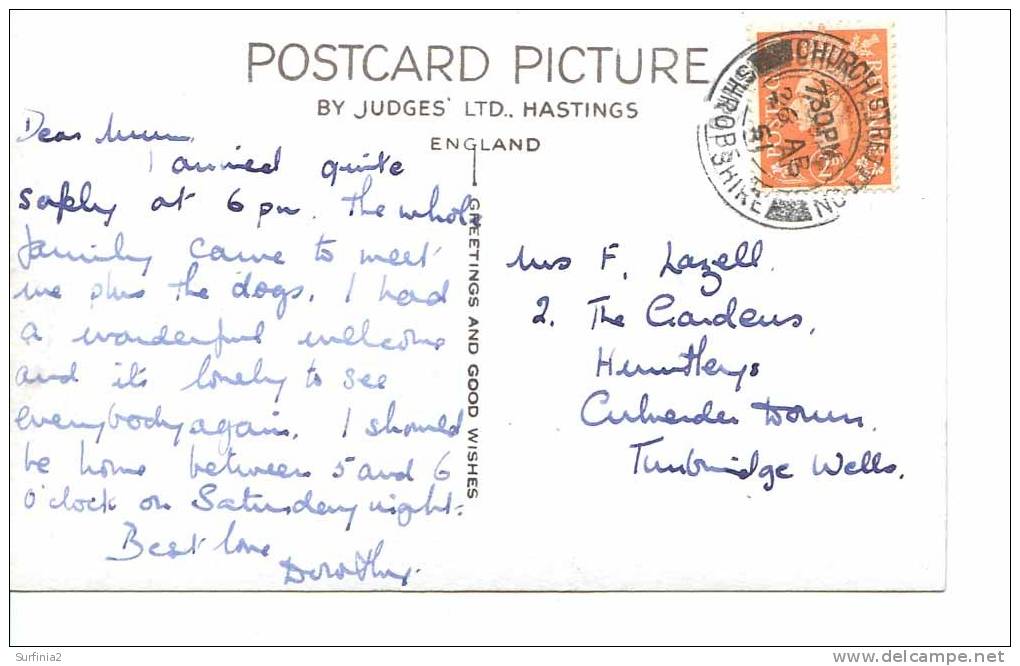 POSTCARD PICTURE
BY JUDGES' LTD., HASTINGS
ENGLAND
GREETINGS AND GOOD WISHES
CHURCH STRETTON
7 30 PM
26 AP
51
SHROPSHIRE
Dear Mum,
I arrived quite
safely at 6 pm. The whole
family came to meet
me plus the dogs. I had
a wonderful wellcome
and it's lovely to see
everybody again. I should
be home between 5 and 6
o'clock on Saturday night.
Best love
Dorothy.
Mrs F. Lazell.
2. The Gardens,
Huntleys
Culverden Down,
Tunbridge Wells.
Surfinia2
www.delcampe.net